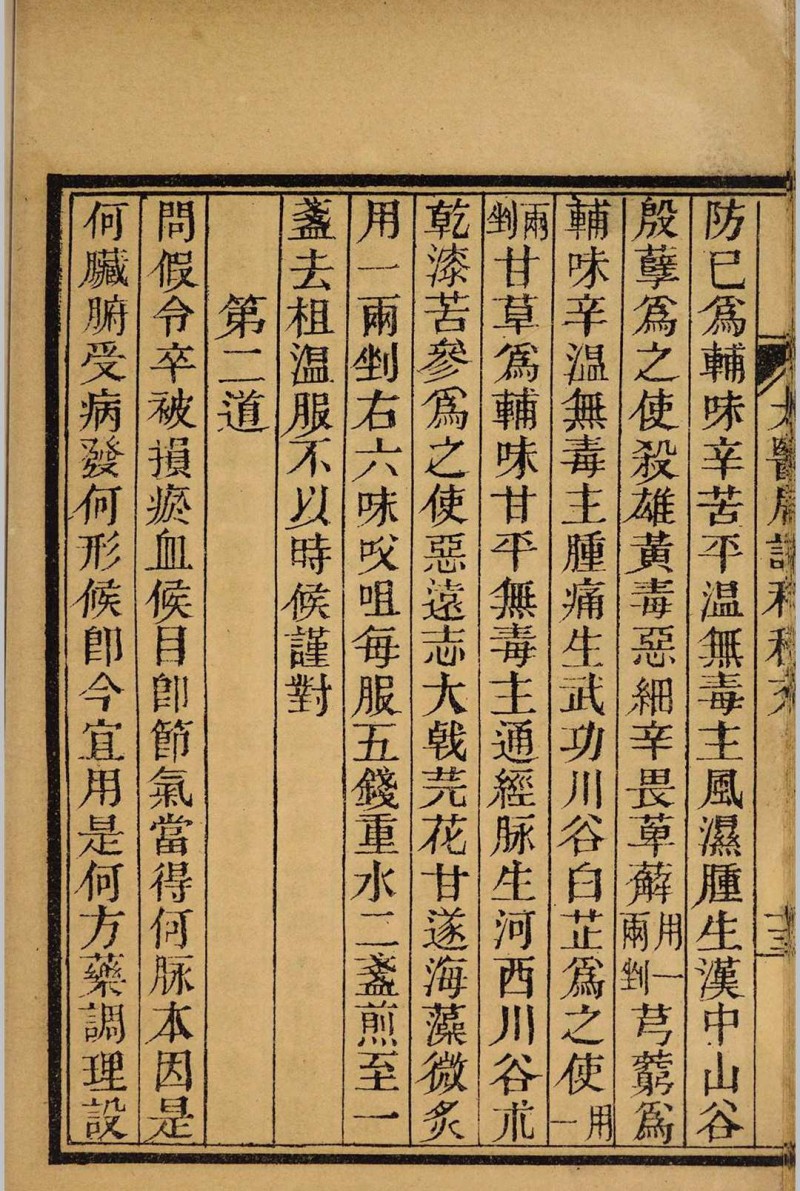 防已爲輔味辛苦平温無毒主風濕腫生漢中山谷
殷孽爲之使殺雄黃毒惡細辛畏萆薢用一兩剉芎藭爲
輔味辛温無毒主腫痛生武功川谷白芷爲之使用一
兩剉甘草爲輔味甘平無毒主通經脉生河西川谷朮
乾漆苦參爲之使惡遠志大戟芫花甘遂海藻微炙
用一兩剉右六味㕮咀每服五錢重水二盞煎至一
盞去柤温服不以時候謹對
第二道
問假令卒被損瘀血候目卽節氣當得何脉本因是
何臟腑受病發何形候卽今宜用是何方藥調理設